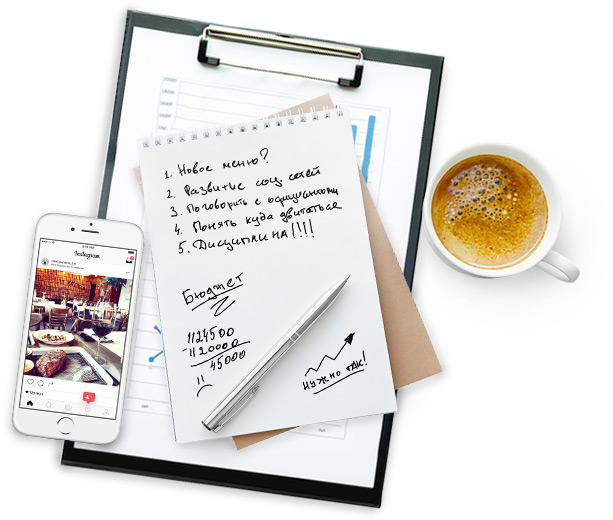 1. Новое меню?
2. Развитие соц. сетей
3. Поговорить с официантами
4. Понять куда двигаться
5. Дисциплина!!!!
Бюджет
1124500
-1120000
45000
нужно так!
Instagram